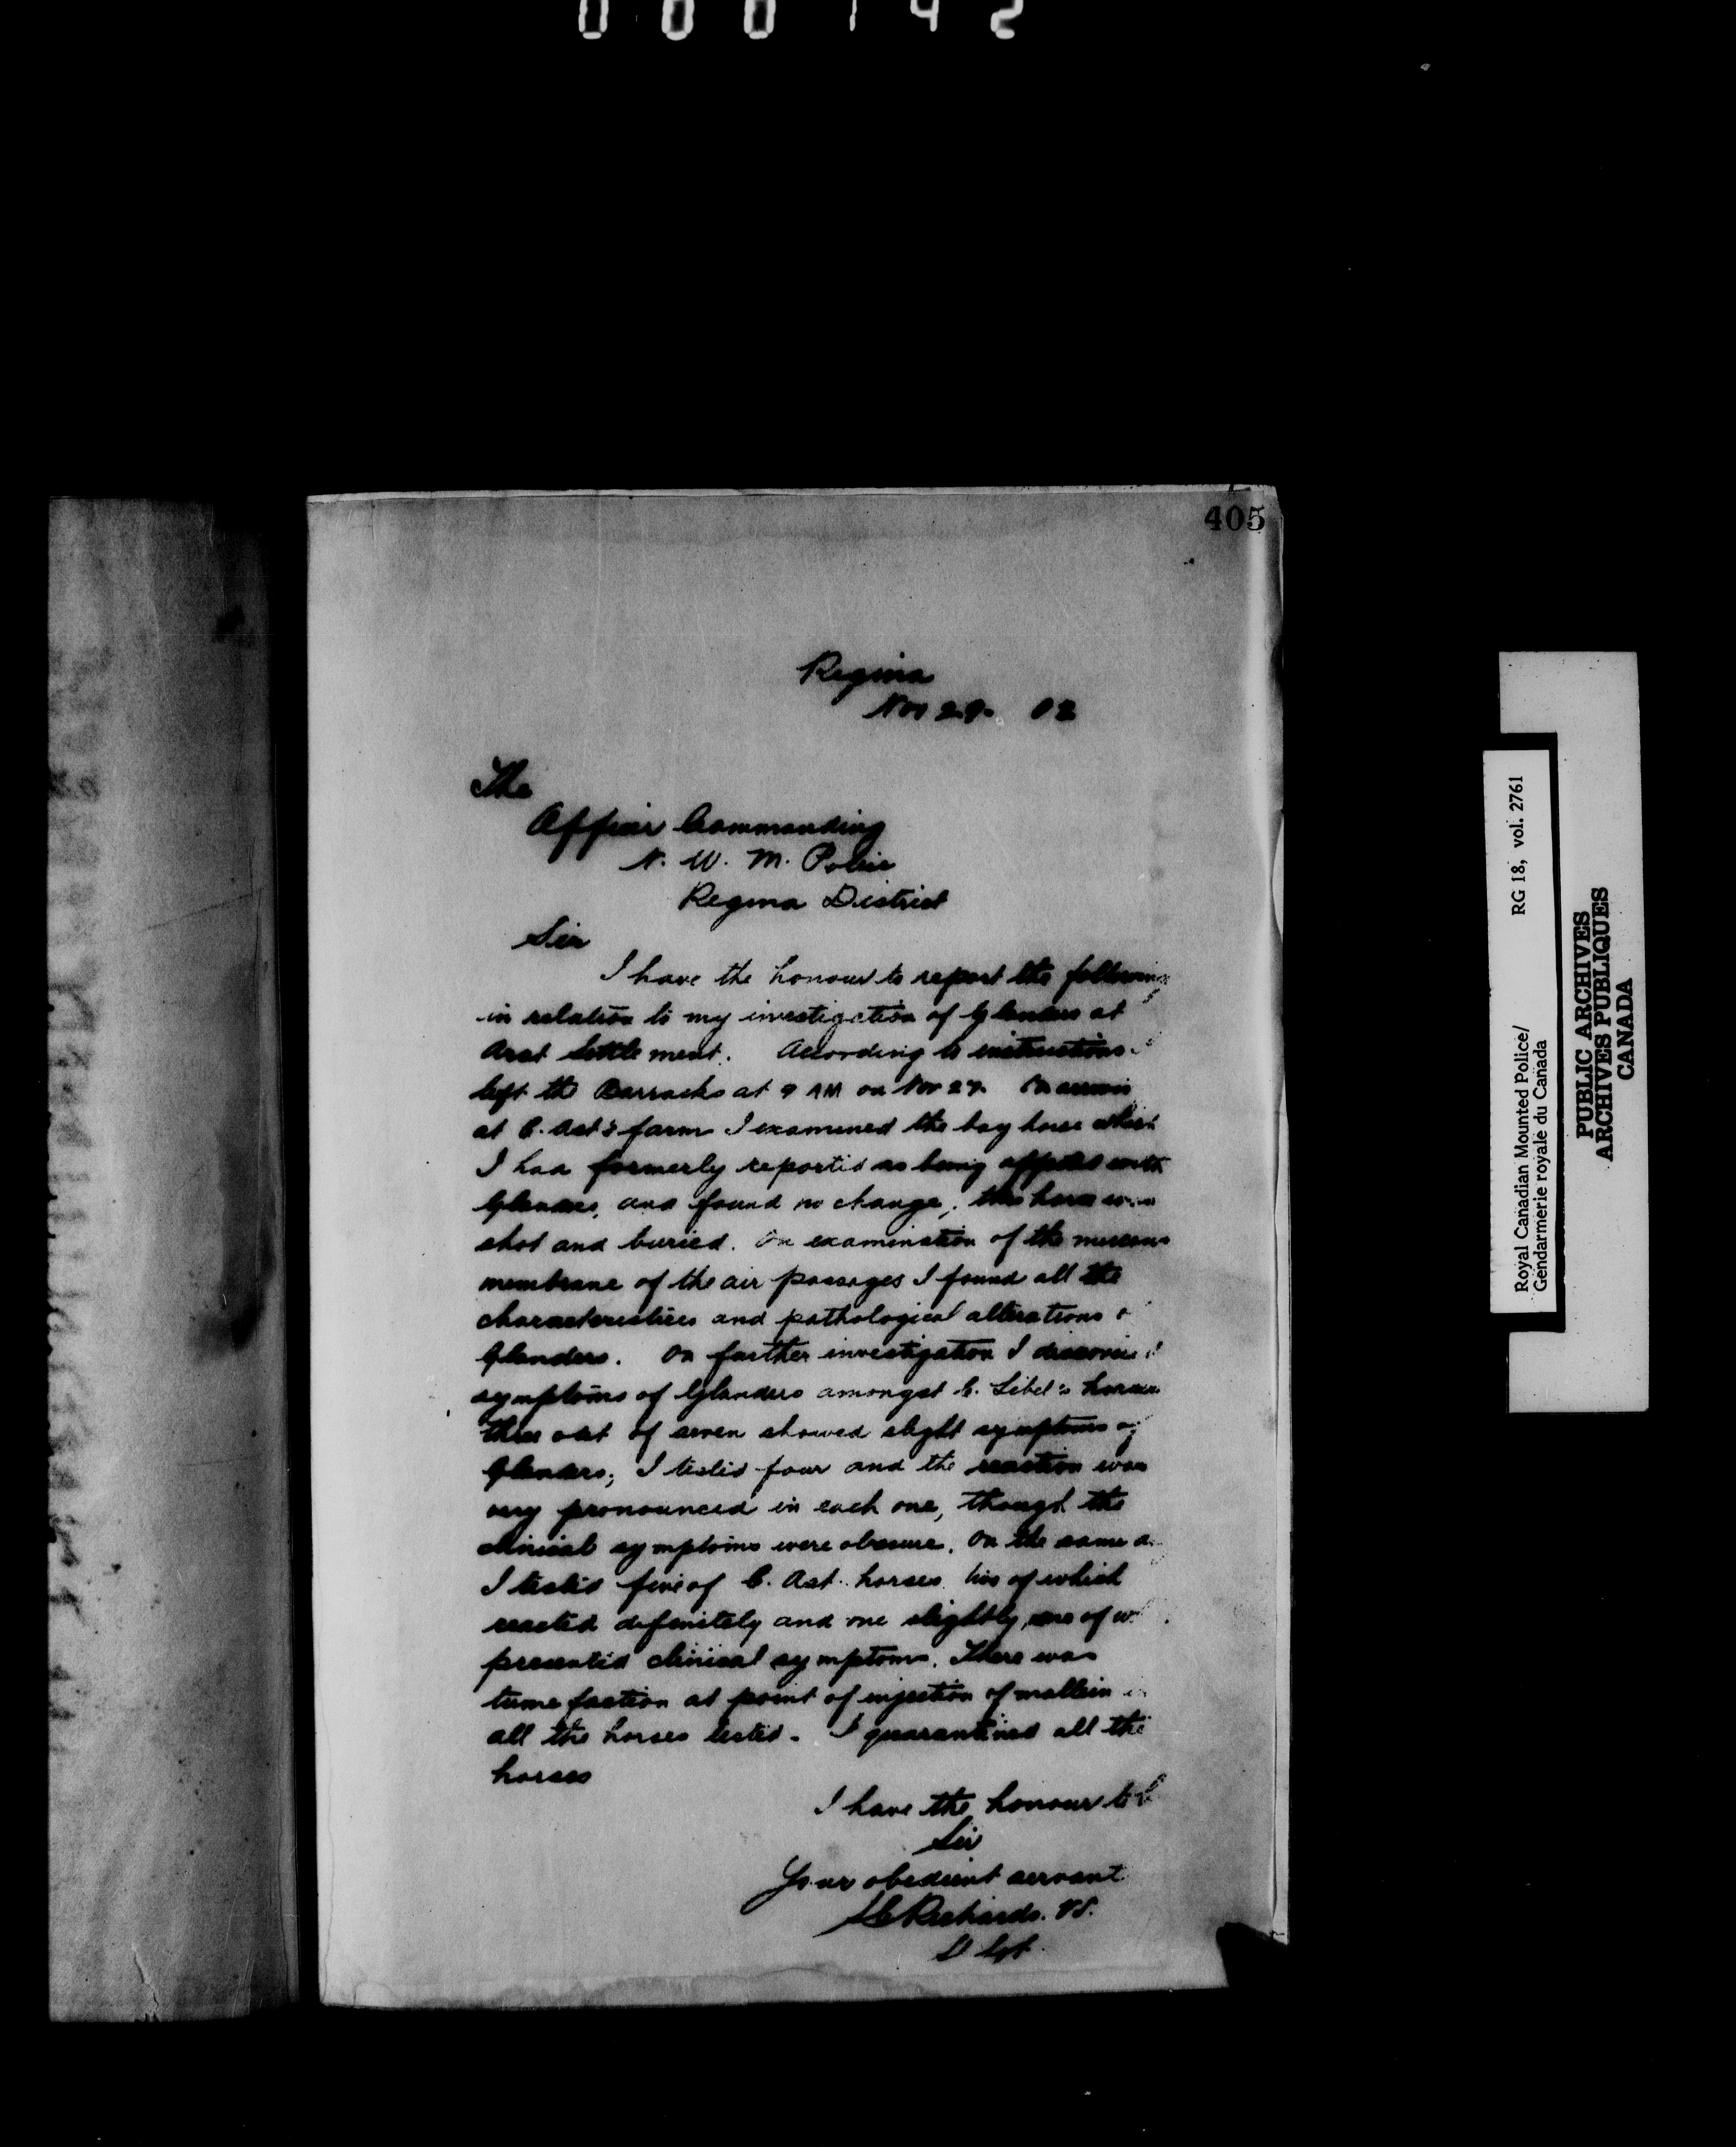 000142
405
Regina
Nov 29. 02
The
Officer Commanding
N. W. M. Police
Regina District
Sir
I have the honour to report the following
in relation to my investigation of Glanders at
Arat Settlement. According to instructions I
left the Barracks at 9 AM on Nov 27. On
at C. Ast's farm I examined the bay horse which
I had formerly reported as being affected with
Glanders, and found no change, this horse was
shot and buried. On examination of the mucous
membrane of the air passages I found all the
characteristics and pathological alterations
Glanders. On further investigation I discovered
symptoms of Glanders amongst C. Libel's horses
three out of seven showed slight symptoms of
Glanders; I tested four and the reaction was
very pronounced in each one, though the
clinical symptoms were obscure. On the same
I tested five of C. Ast. horses two of which
reacted definitely and one slightly, one of
presented clinical symptoms. There was
tumefaction at point of injection of mallein in
all the horses tested. I quarantined all the
horses
I have the honour to b
Sir
Your obedient servant
Richards. VS.
S Sgt.
Royal Canadian Mounted Police/
Gendarmerie royale du Canada
RG 18, vol. 2761
PUBLIC ARCHIVES
ARCHIVES PUBLIQUES
CANADA